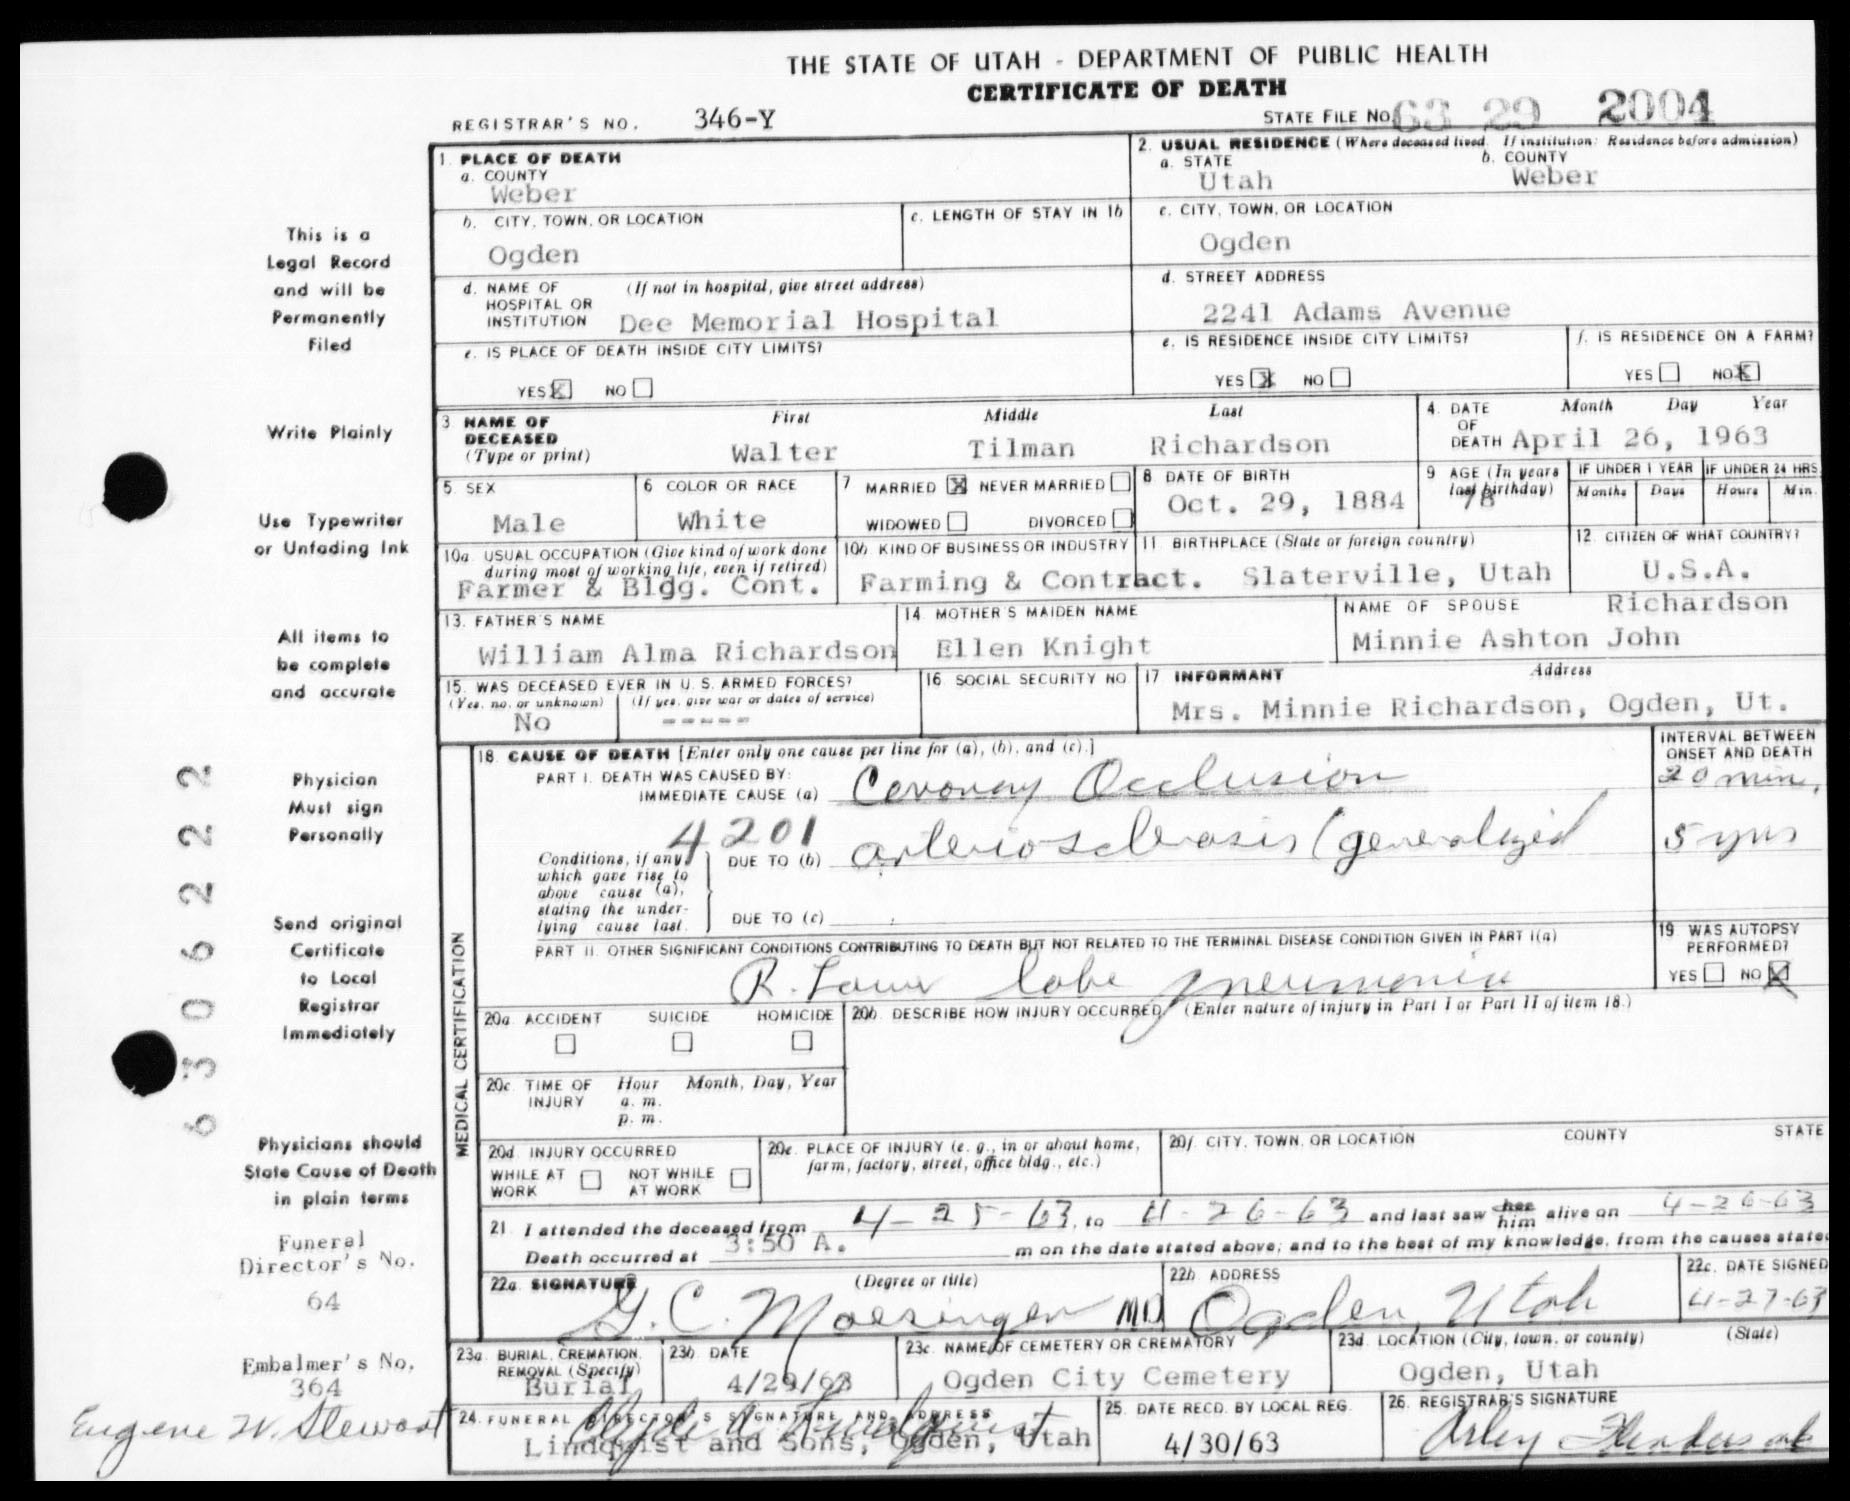 THE STATE OF UTAH - DEPARTMENT OF PUBLIC HEALTH
CERTIFICATE OF DEATH
REGISTRAR'S NO. 346-Y
STATE FILE NO. 63 29 2004
This is a
Legal Record
and will be
Permanently
Filed
Write Plainly
Use Typewriter
or Unfading Ink
All items to
be complete
and accurate
Physician
Must sign
Personally
Send original
Certificate
to Local
Registrar
Immediately
Physicians should
State Cause of Death
in plain terms
Funeral
Director's No.
64
Embalmer's No.
364
Eugene W. Stewart
6306222
1. PLACE OF DEATH
a. COUNTY
Weber
b. CITY, TOWN, OR LOCATION
Ogden
c. LENGTH OF STAY IN 1b
d. NAME OF HOSPITAL OR INSTITUTION (If not in hospital, give street address)
Dee Memorial Hospital
e. IS PLACE OF DEATH INSIDE CITY LIMITS?
YES X NO
2. USUAL RESIDENCE (Where deceased lived. If institution: Residence before admission)
a. STATE
Utah
b. COUNTY
Weber
c. CITY, TOWN, OR LOCATION
Ogden
d. STREET ADDRESS
2241 Adams Avenue
e. IS RESIDENCE INSIDE CITY LIMITS?
YES X NO
f. IS RESIDENCE ON A FARM?
YES NO X
3 NAME OF DECEASED (Type or print)
First Middle Last
Walter Tilman Richardson
4. DATE OF DEATH
Month Day Year
April 26, 1963
5. SEX
Male
6 COLOR OR RACE
White
7 MARRIED X NEVER MARRIED
WIDOWED DIVORCED
8 DATE OF BIRTH
Oct. 29, 1884
9 AGE (In years last birthday)
78
IF UNDER 1 YEAR
Months Days
IF UNDER 24 HRS.
Hours Min.
10a USUAL OCCUPATION (Give kind of work done during most of working life, even if retired)
Farmer & Bldg. Cont.
10b KIND OF BUSINESS OR INDUSTRY
Farming & Contract.
11 BIRTHPLACE (State or foreign country)
Slaterville, Utah
12. CITIZEN OF WHAT COUNTRY?
U.S.A.
13. FATHER'S NAME
William Alma Richardson
14 MOTHER'S MAIDEN NAME
Ellen Knight
NAME OF SPOUSE Richardson
Minnie Ashton John
15. WAS DECEASED EVER IN U. S. ARMED FORCES?
(Yes, no, or unknown) (If yes, give war or dates of service)
No -----
16 SOCIAL SECURITY NO.
17 INFORMANT Address
Mrs. Minnie Richardson, Ogden, Ut.
MEDICAL CERTIFICATION
18. CAUSE OF DEATH [Enter only one cause per line for (a), (b), and (c).]
INTERVAL BETWEEN ONSET AND DEATH
PART I. DEATH WAS CAUSED BY:
IMMEDIATE CAUSE (a) Coronary Occlusion 20 min.
4201
Conditions, if any, which gave rise to above cause (a), stating the underlying cause last.
DUE TO (b) arteriosclerosis (generalized 5 yrs
DUE TO (c)
PART II. OTHER SIGNIFICANT CONDITIONS CONTRIBUTING TO DEATH BUT NOT RELATED TO THE TERMINAL DISEASE CONDITION GIVEN IN PART I(a)
R. Lower lobe pneumonia
19 WAS AUTOPSY PERFORMED?
YES NO X
20a. ACCIDENT SUICIDE HOMICIDE
20b. DESCRIBE HOW INJURY OCCURRED (Enter nature of injury in Part I or Part II of item 18.)
20c. TIME OF INJURY Hour Month, Day, Year
a. m.
p. m.
20d. INJURY OCCURRED
WHILE AT WORK NOT WHILE AT WORK
20e. PLACE OF INJURY (e. g., in or about home, farm, factory, street, office bldg., etc.)
20f. CITY, TOWN, OR LOCATION COUNTY STATE
21. I attended the deceased from 4-25-63, to 4-26-63 and last saw her him alive on 4-26-63
Death occurred at 3:50 A. m on the date stated above; and to the best of my knowledge, from the causes state
22a. SIGNATURE (Degree or title)
G. C. Moesinger MD
22b ADDRESS
Ogden, Utah
22c. DATE SIGNED
4-27-63
23a. BURIAL, CREMATION, REMOVAL (Specify)
Burial
23b DATE
4/29/63
23c. NAME OF CEMETERY OR CREMATORY
Ogden City Cemetery
23d. LOCATION (City, town, or county) (State)
Ogden, Utah
24. FUNERAL DIRECTOR'S SIGNATURE AND ADDRESS
Lindquist and Sons, Ogden, Utah
25. DATE RECD. BY LOCAL REG.
4/30/63
26. REGISTRAR'S SIGNATURE